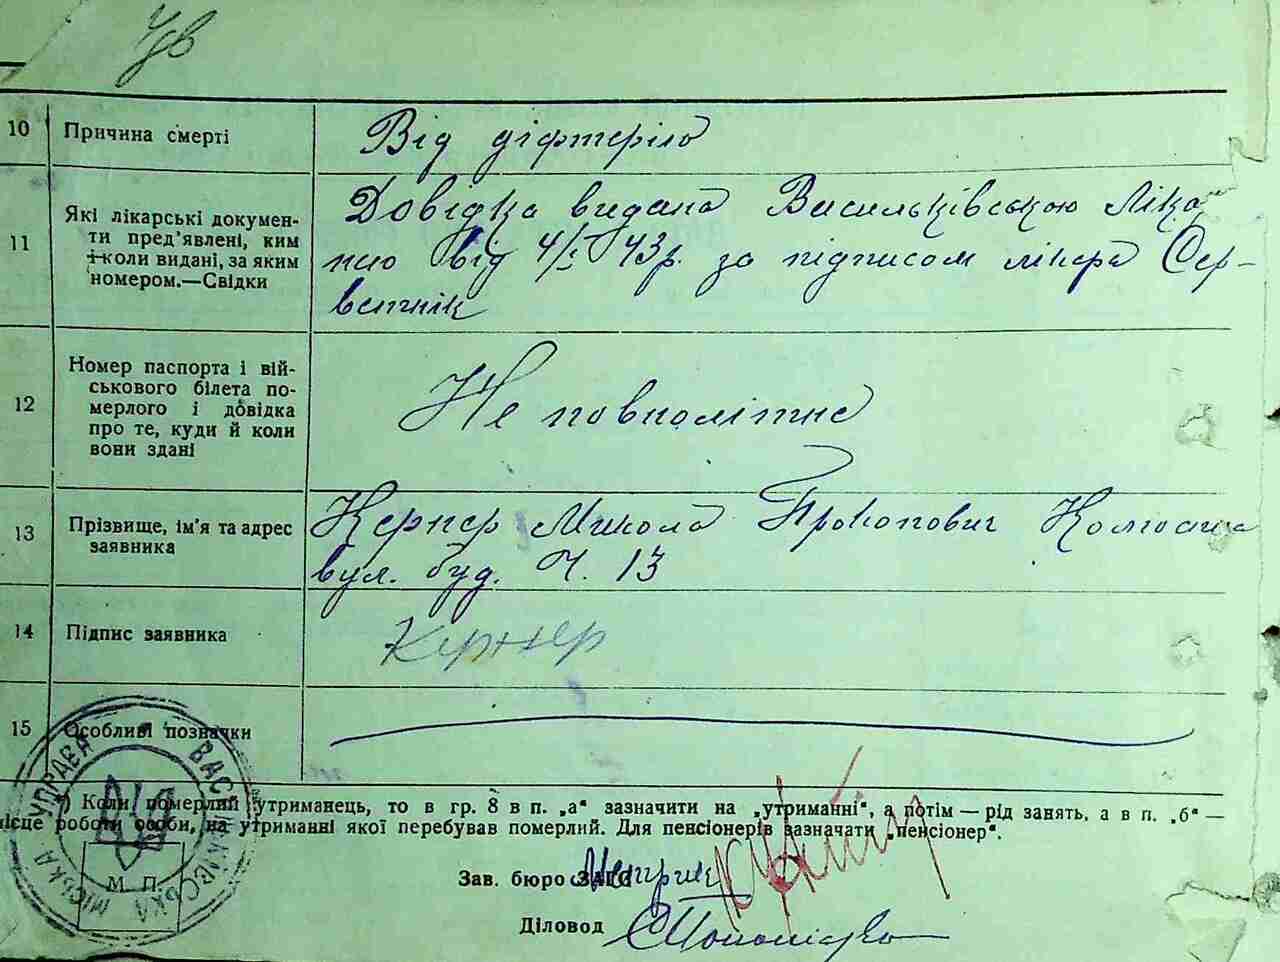 10 Причина смерті Від діфтеріло
11 Які лікарські докумен-
ти пред'явлені, ким
і коли видані, за яким
номером.—Свідки
Довідка видана Васильківською Ліка
нею від 4/I 43р. за підписом лікара Сер-
12 Номер паспорта і вій-
ськового білета по-
мерлого і довідка
про те, куди й коли
вони здані
Не повнолітнє
13 Прізвище, ім'я та адрес
заявника
Кернер Микола Прокопович
вул. буд. Ч. 13
14 Підпис заявника Кернер
15 Особливі позначки
) Коли померлий утриманець, то в гр. 8 в п. „а“ зазначити на „утриманні“, а потім — рід занять, а в п. „б“ —
місце роботи особи, на утриманні якої перебував померлий. Для пенсіонерів зазначати „пенсіонер“.
Зав. бюро ЗАГС Метрик
М. П.
Діловод
ВАСИЛЬКІВСЬКА МІСЬКА УПРАВА